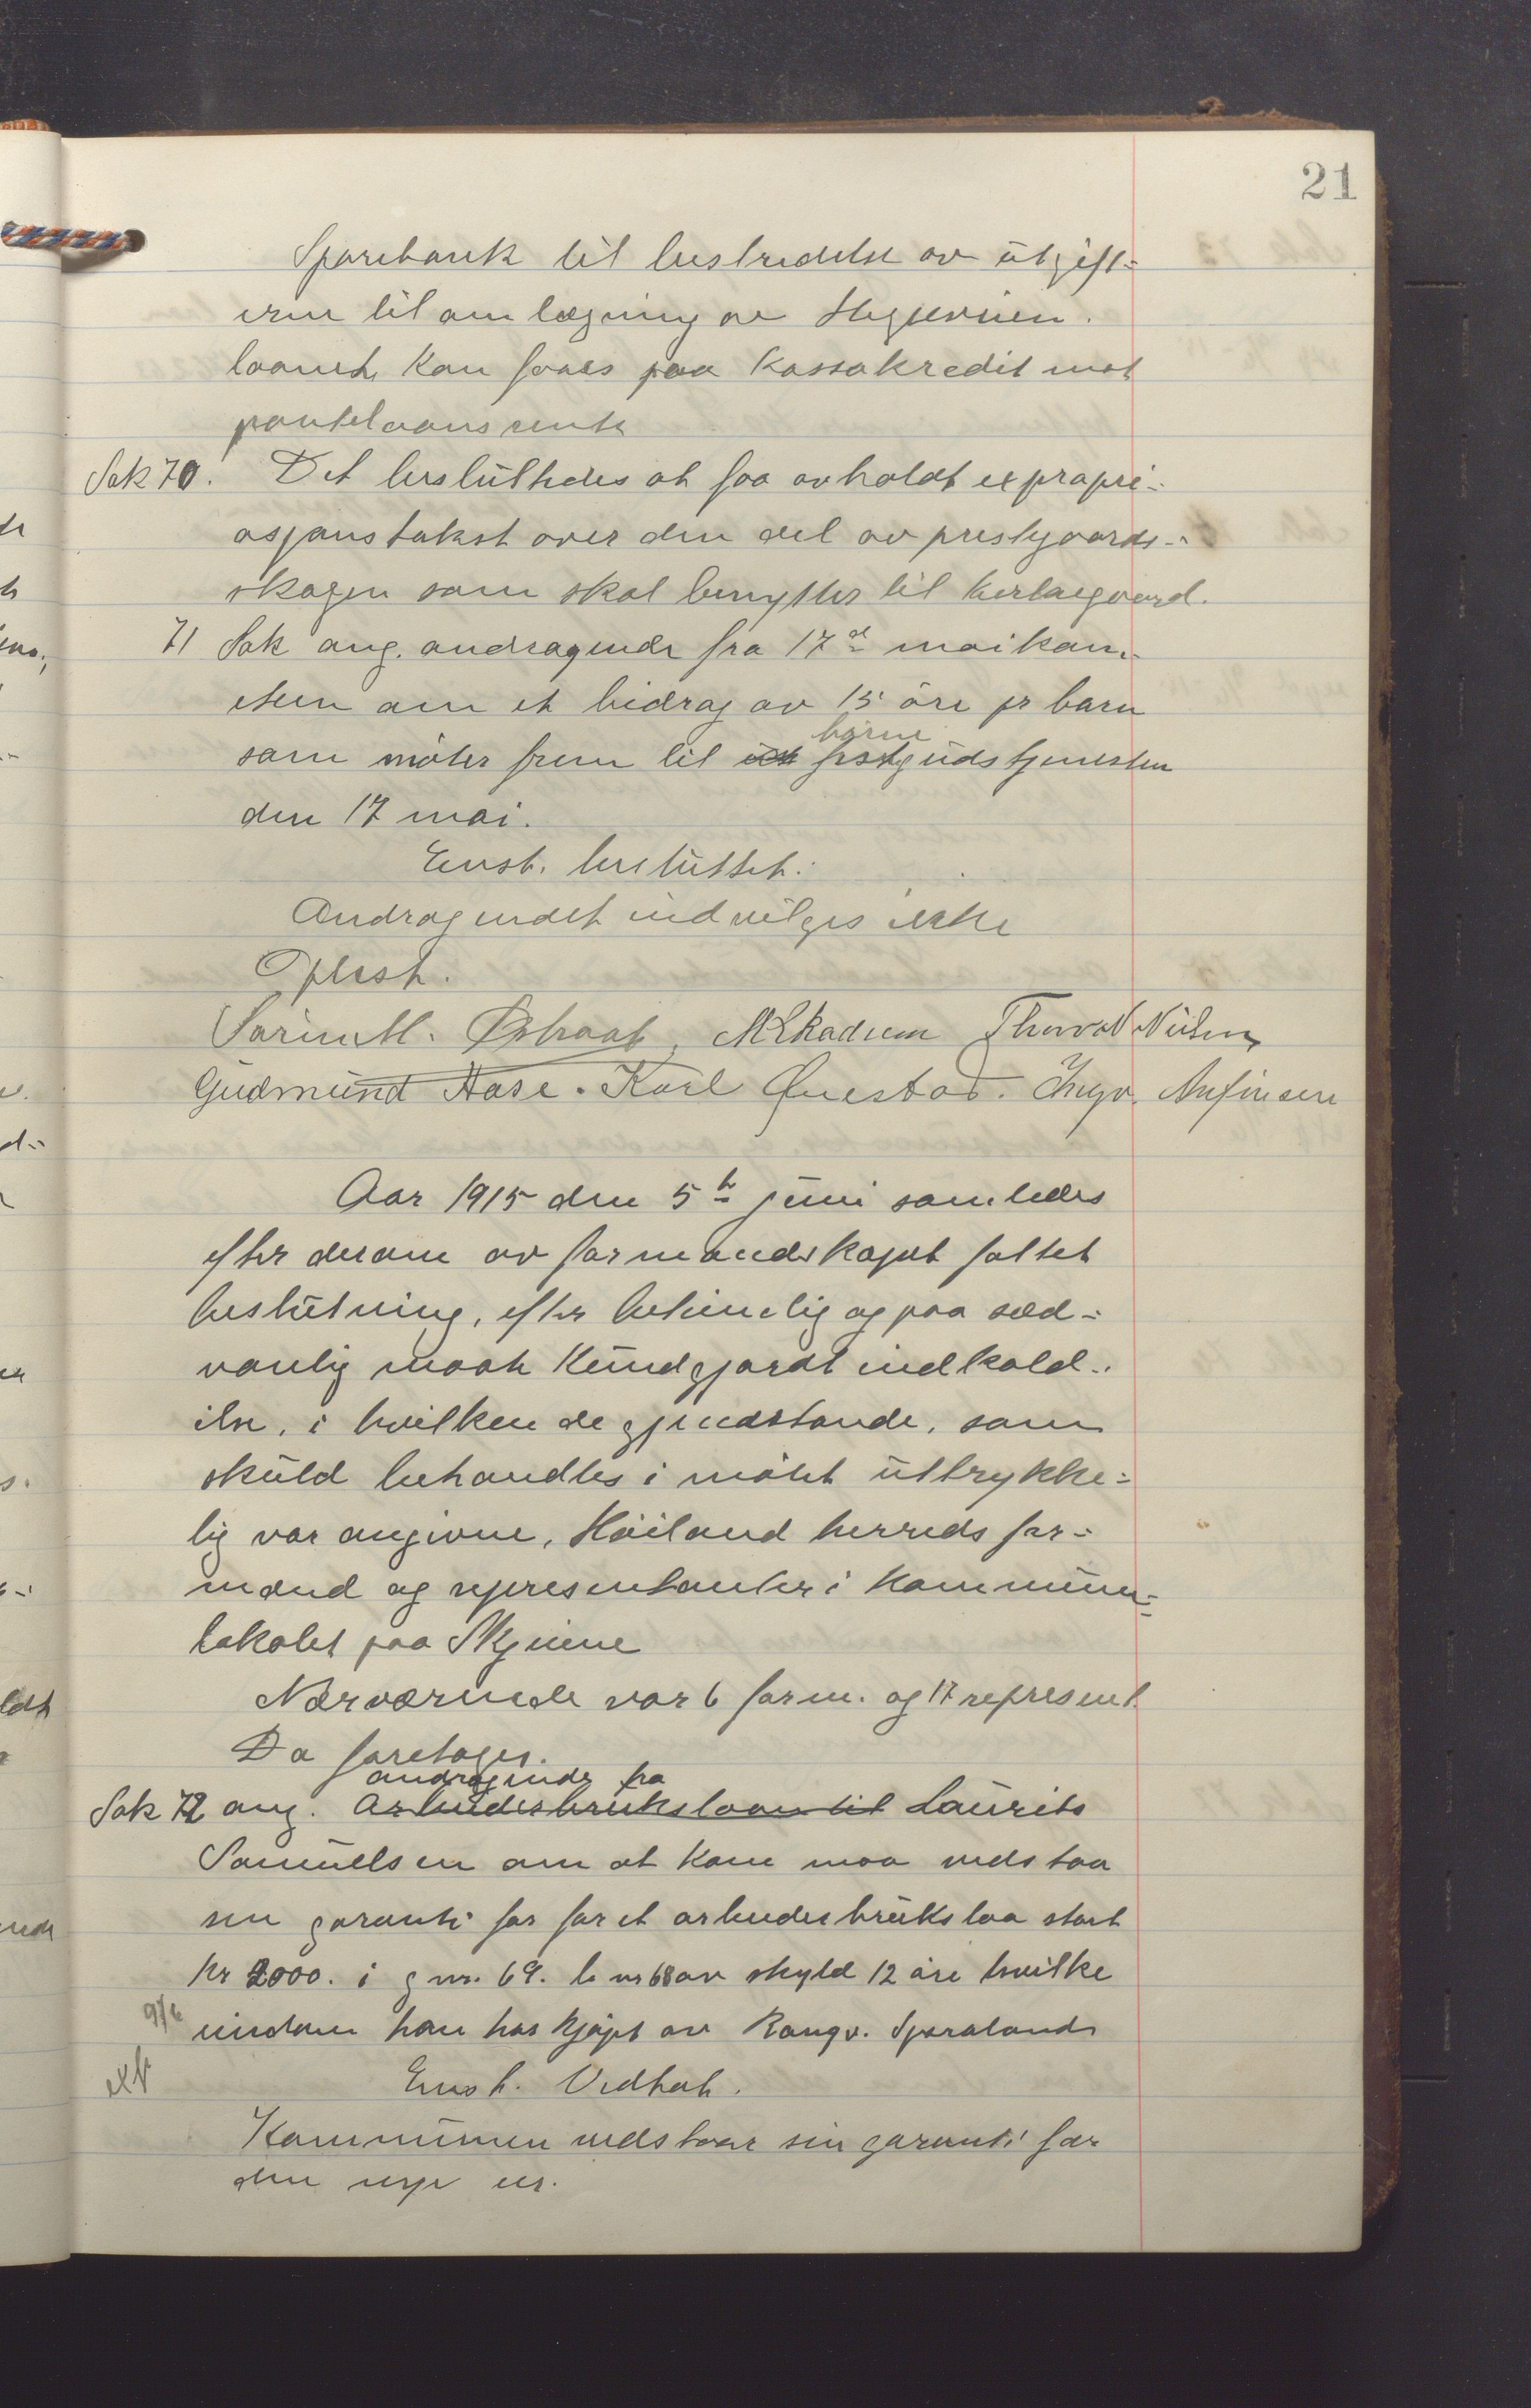 21
Sparebank til bestridelse av utgift-
erne til omlægning av
laanet kan faaes paa Kassakredit mot
pantelaansrente
Sak 70. Det besluttedes at faa avholdt expropri-
asjonstakst over den del av prestgaards-
skogen som skal benyttes til kirkegaard.
71 Sak ang. andragende fra 17d maikom-
iteen om et bidrag av 15 öre pr barn
börne
som möter frem til festgudstjenesten
den 17 mai.
Enst. besluttet:
Andragendet indvilges ikke
Oplest.
Sörin M. Østraat, M Skadsem Thorvald Nilsen
Gudmund Aase. Karl Questad. Ingv. Anfinsen
Aar 1915 den 5te juni samledes
efter derom av formandskapet fattet
beslutning, efter betimelig og paa sæd-
vanlig maate kundgjordt indkald-
else, i hvilken de gjendstande, som
skuld behandles i mötet uttrykke-
lig var angivne, Höiland herreds for-
mænd og representanter i kommune-
lokalet paa Skjeiene
Nærværende var 6 form. og 17 represent.
Da foretages.
andragende fra
Sak 72 ang. Arbeiderbrukslaan til Laurits
Samuelsen om at kom maa vedstaa
sin garanti for for et arbeiderbrukslaa stort
Kr 2000. i g nr. 69. b nr 68 av skyld 12 öre hvilke
9/6 eiendom han has kjöpt av Rangv. Spraland
ext Enst. Vedtat.
Kommunen vedstaar sin garanti for
den nye eier.